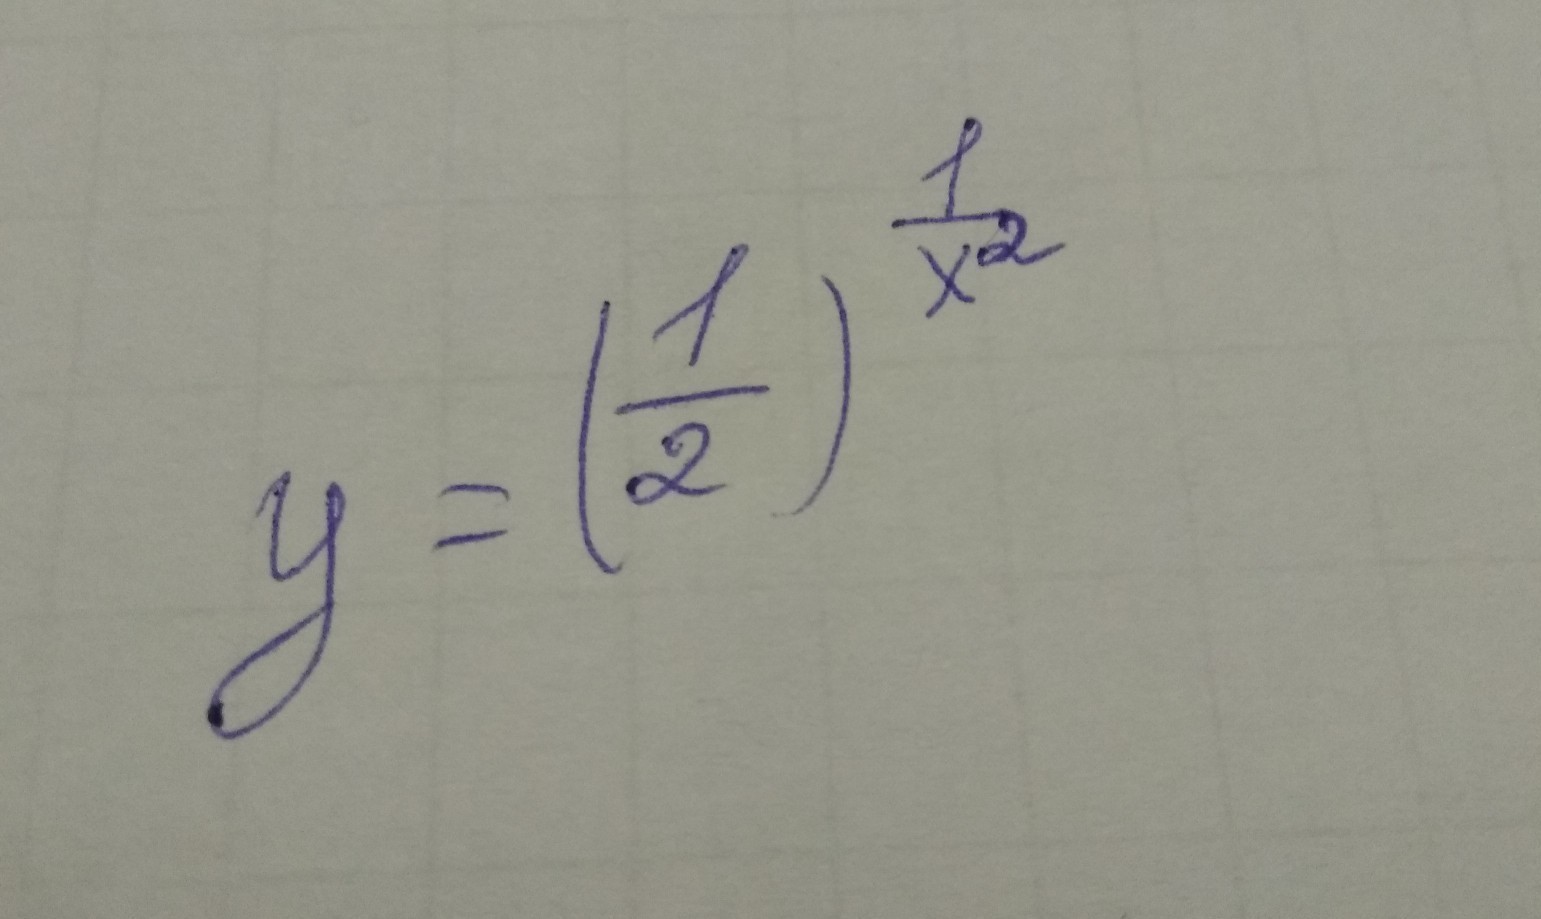 y = (1/2)^(1/x²)